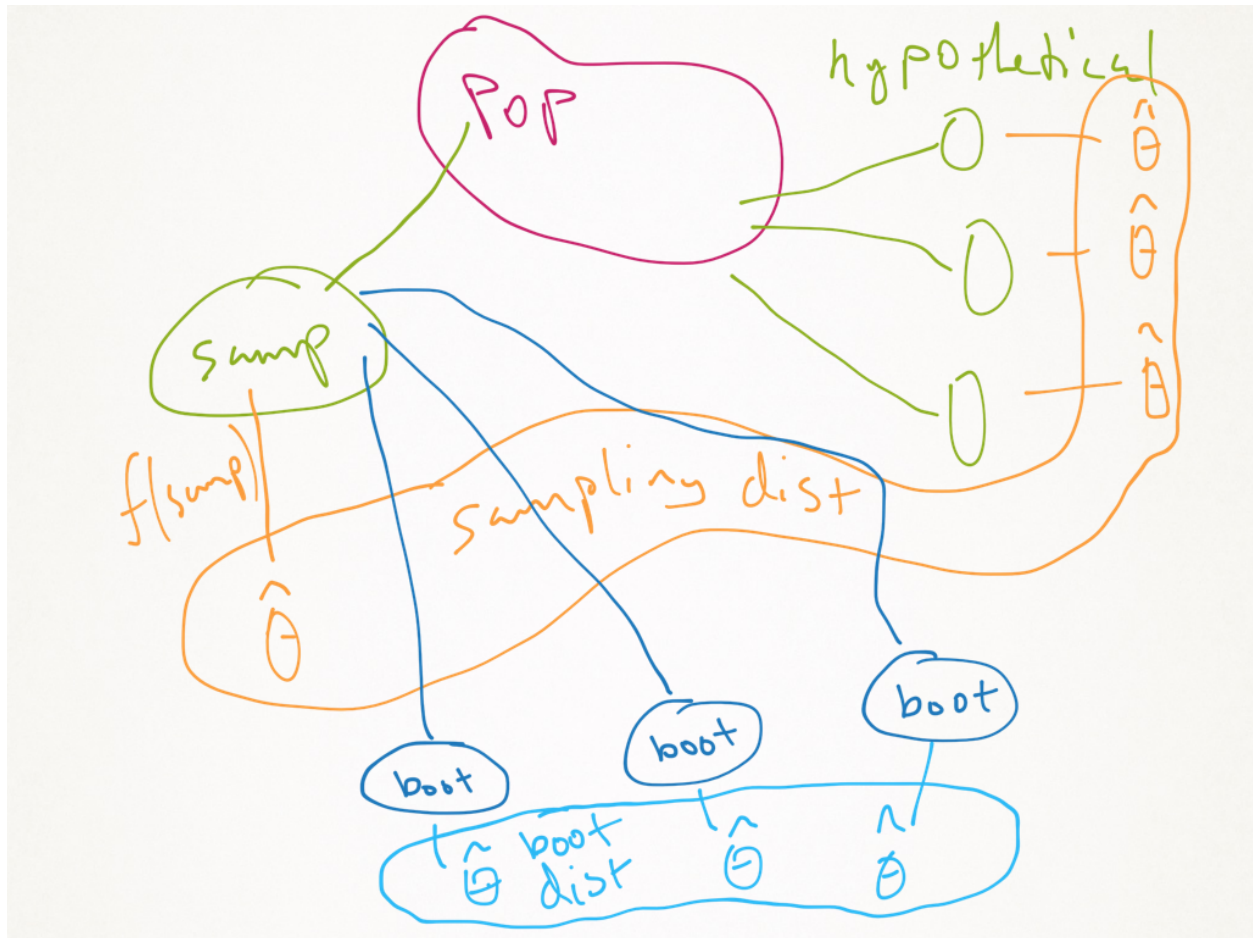 hypothetical
Pop
θ̂
θ̂
samp
θ̂
f(samp)
sampling dist
θ̂
boot
boot
boot
θ̂ boot dist
θ̂
θ̂